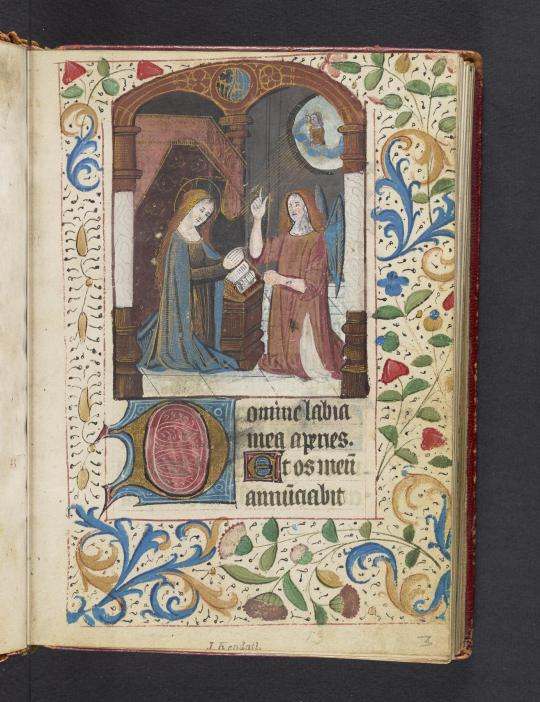 Domine labia
mea aperies.
Et os meū
annūciabit
J. Kendall.